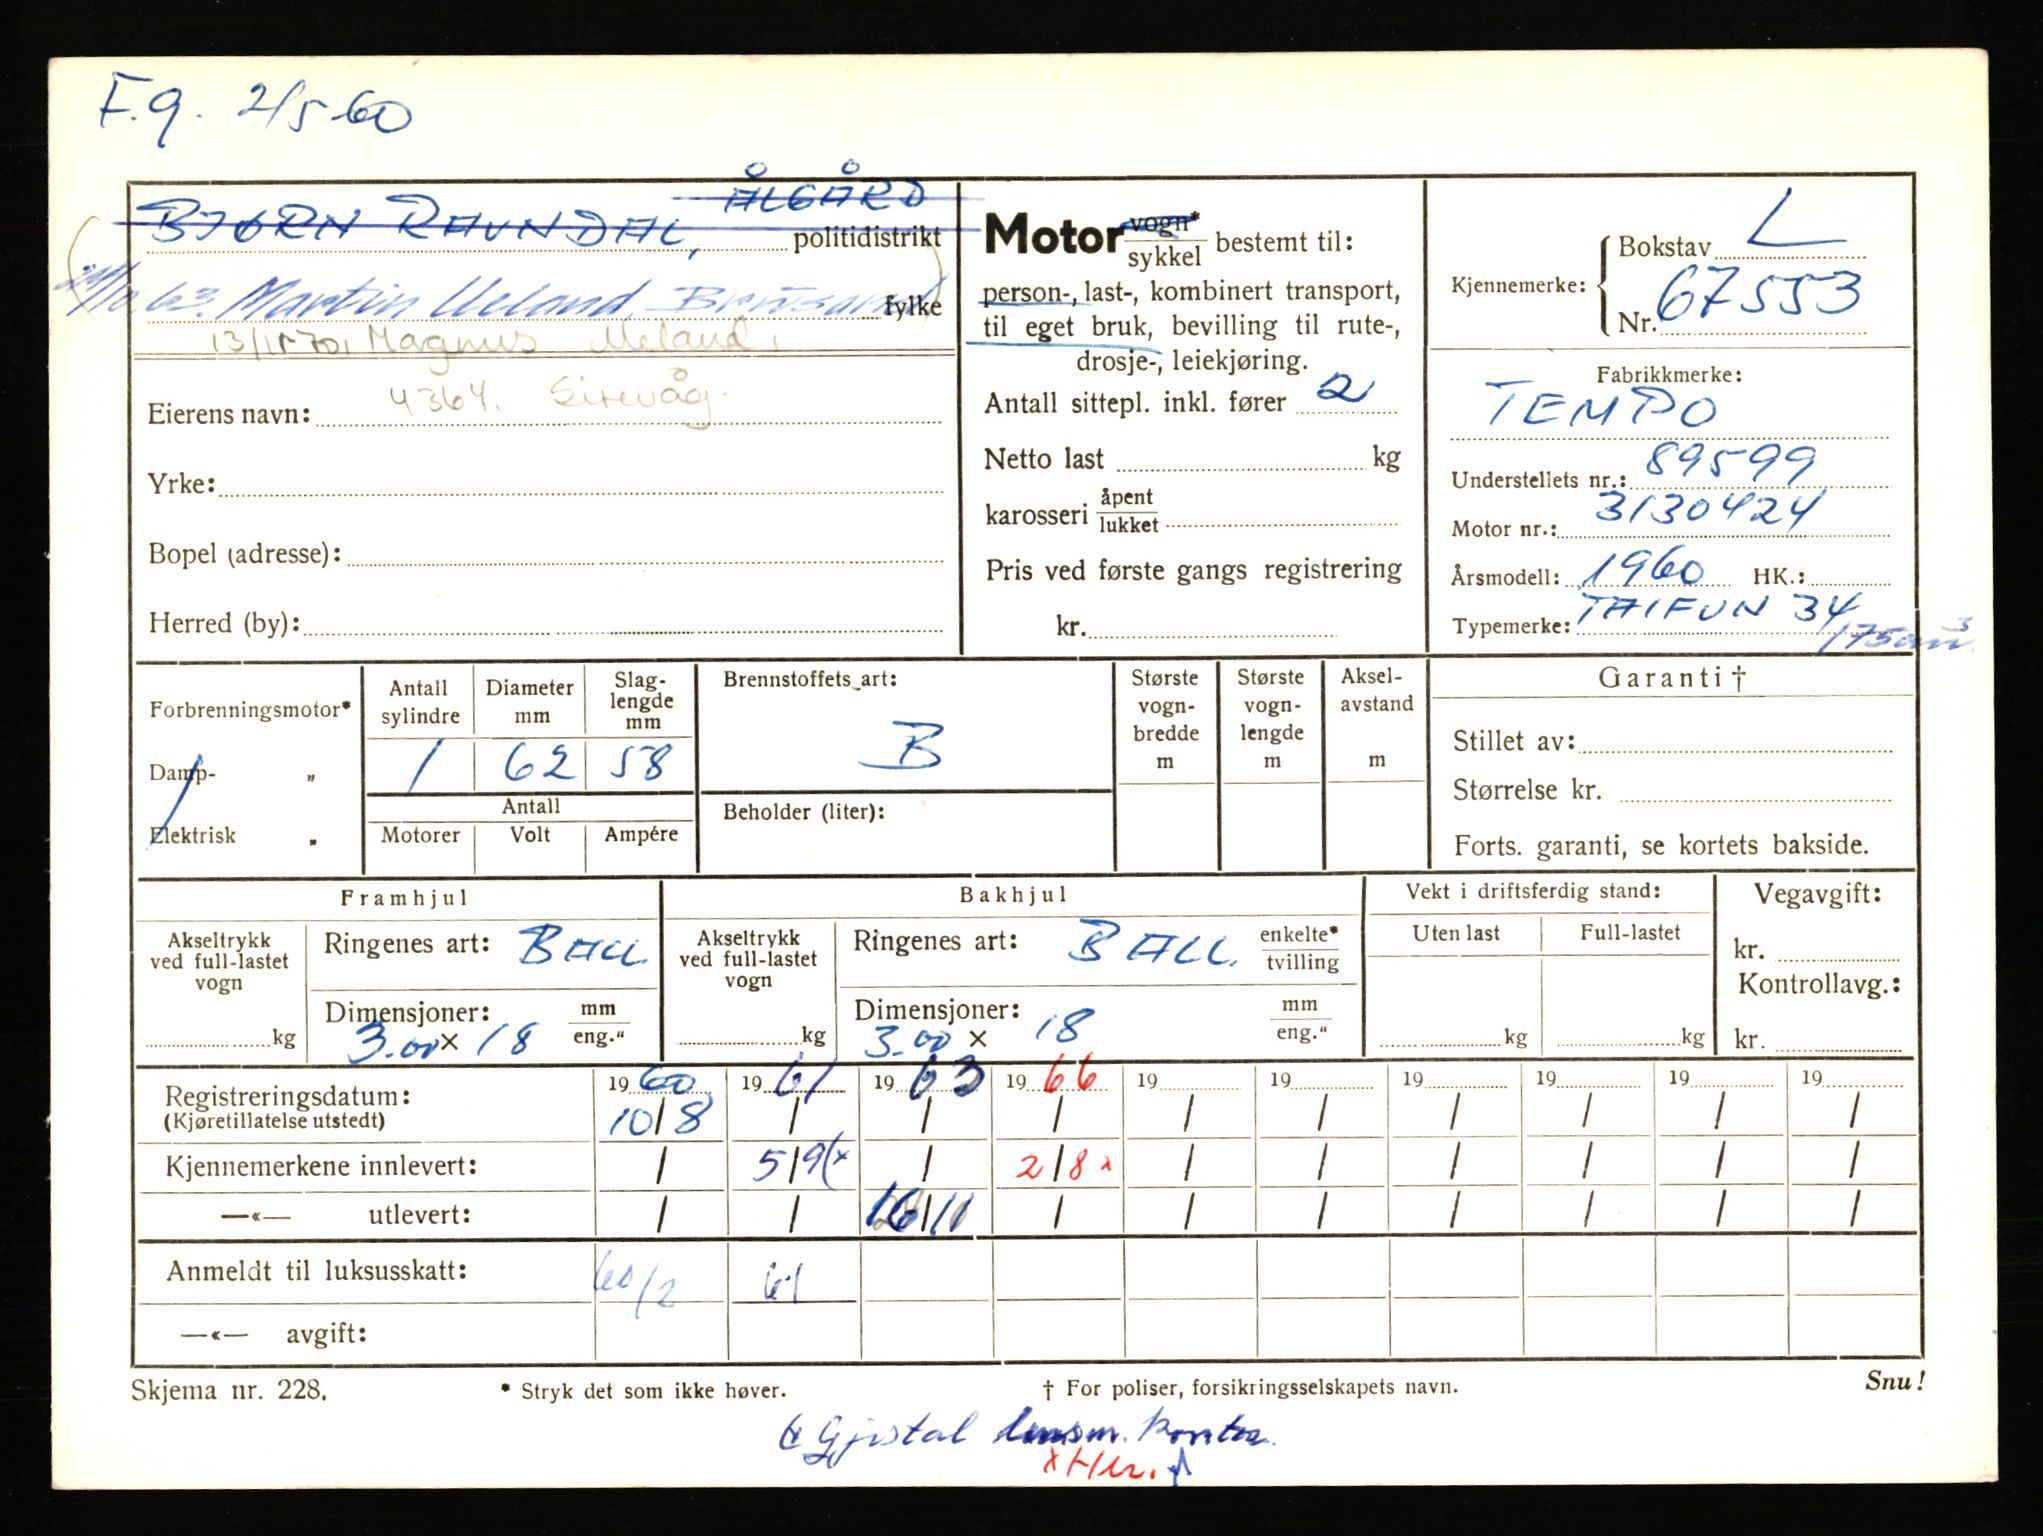 F.g. 2/5-60
BJØRN RAUNDAL, ÅLGÅRD
politidistrikt
10.63. Martin Ueland, Brusand
fylke
Magnus Meland,
Eierens navn: 4364. Sirevåg.
Yrke:
Bopel (adresse):
Herred (by):
Motor vogn* / sykkel bestemt til:
person-, last-, kombinert transport,
til eget bruk, bevilling til rute-,
drosje-, leiekjøring.
Antall sittepl. inkl. fører 2
Netto last kg
karosseri åpent / lukket
Pris ved første gangs registrering
kr.
Kjennemerke: Bokstav L
Nr. 67553
Fabrikkmerke:
TEMPO
Understellets nr.: 89599
Motor nr.: 3130424
Årsmodell: 1960 HK.:
Typemerke: TAIFUN 34
175cm³
Forbrenningsmotor*
Damp- "
Elektrisk "
Antall sylindre 1
Diameter mm 62
Slag-lengde mm 58
Antall
Motorer Volt Ampére
Brennstoffets art:
B
Beholder (liter):
Største vogn-bredde m
Største vogn-lengde m
Aksel-avstand m
Garanti †
Stillet av:
Størrelse kr.
Forts. garanti, se kortets bakside.
Framhjul
Akseltrykk ved full-lastet vogn kg
Ringenes art: BALL.
Dimensjoner: mm / eng."
3.00 x 18
Bakhjul
Akseltrykk ved full-lastet vogn kg
Ringenes art: BALL. enkelte* / tvilling
Dimensjoner: mm / eng."
3.00 x 18
Vekt i driftsferdig stand:
Uten last Full-lastet
kg kg
Vegavgift:
kr.
Kontrollavg.:
kr.
1960 1961 1963 1966 19 19 19 19 19 19
Registreringsdatum: 10/8 / / / / / / / / /
(Kjøretillatelse utstedt)
Kjennemerkene innlevert: / 5/9(x / 2/8 x / / / / / /
—«— utlevert: / / 16/11 / / / / / / /
Anmeldt til luksusskatt: 60/2 61
—«— avgift:
Skjema nr. 228. * Stryk det som ikke høver. † For poliser, forsikringsselskapets navn. Snu!
Gjestal lensm. kontor.